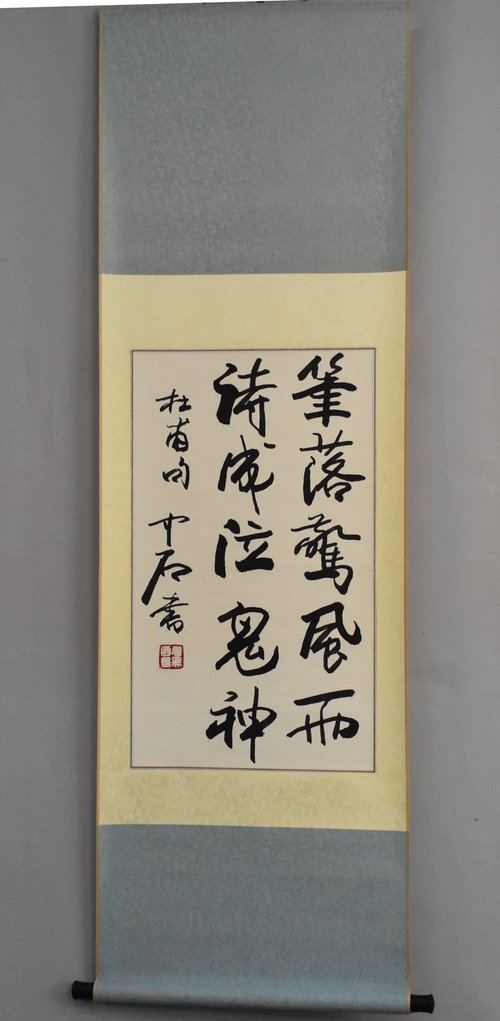 筆落驚風雨
詩成泣鬼神
杜甫句 中石書